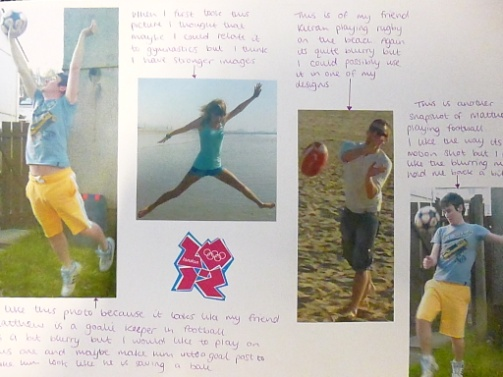 When I first took this
picture I thought that
maybe I could relate it
to gymnastics but I think
I have stronger images
This is of my friend
Kieran playing rugby
on the beach Again
its quite blurry but
I could possibly use
it in one of my
designs.
This is another
snapshot of
playing football
I like the way its
motion shot but I
like the blurring
had me back a
london
like this photo because it looks like my friend
is a goalie keeper in football
is a bit blurry but I would like to play on
this one and maybe make him into goal post to
make him look like he is saving a ball